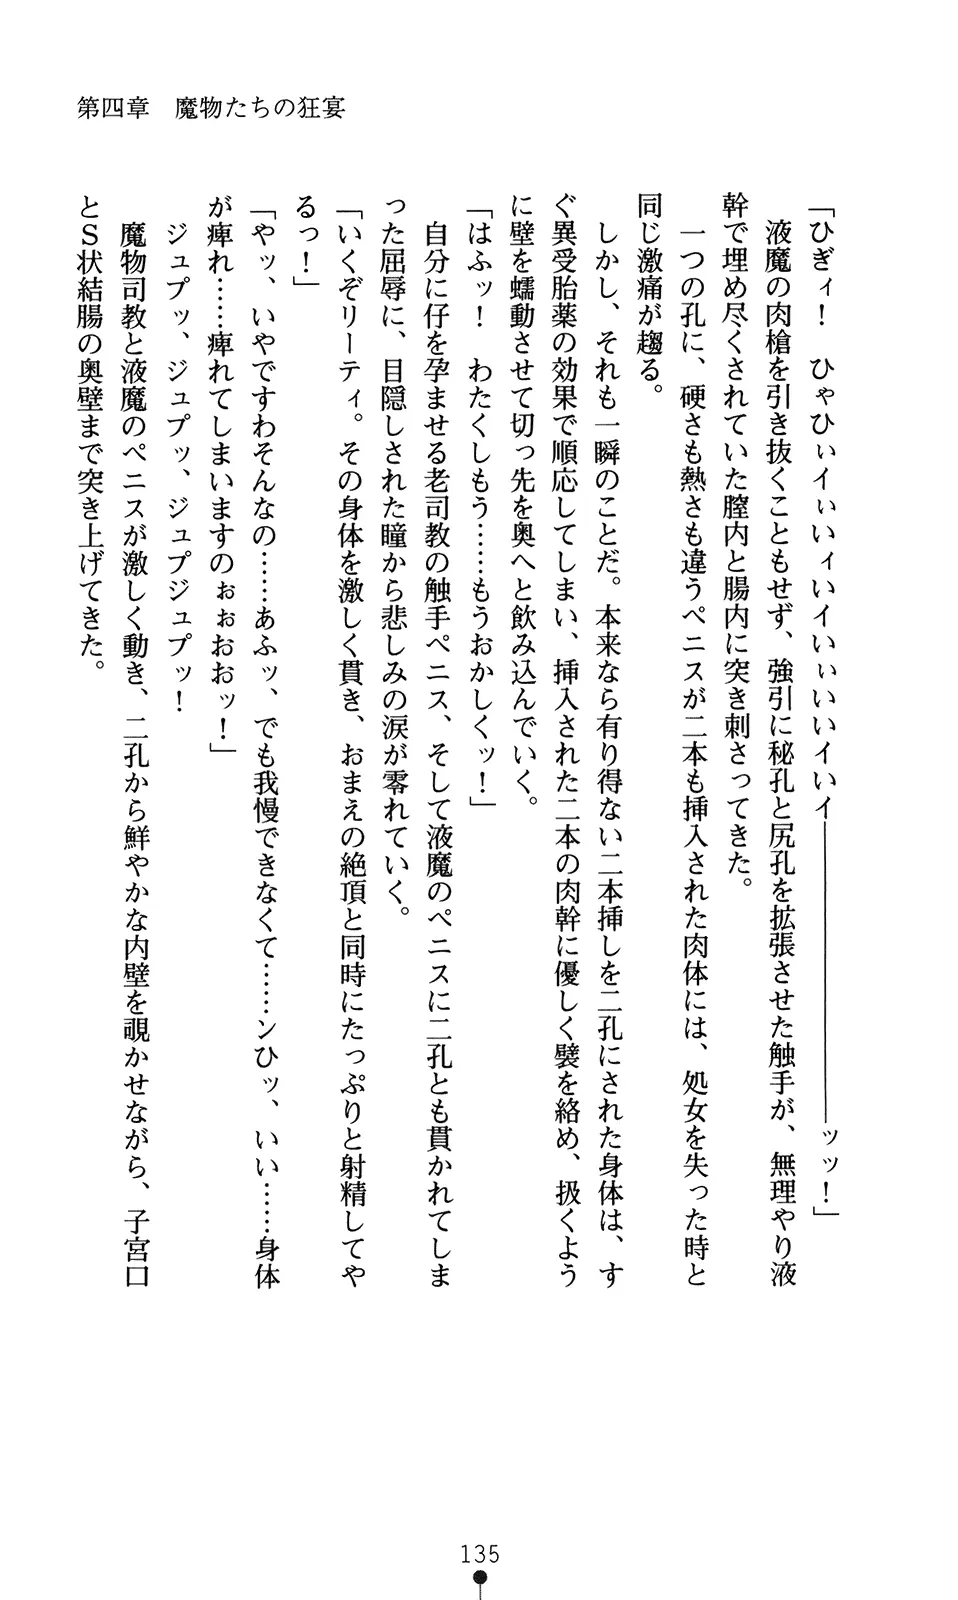 第四章　魔物たちの狂宴
「ひぎィ！　ひゃひぃイぃいィいイいぃいいイいイ――――――――――ッッ！」
　液魔の肉槍を引き抜くこともせず、強引に秘孔と尻孔を拡張させた触手が、無理やり液
幹で埋め尽くされていた膣内と腸内に突き刺さってきた。
　一つの孔に、硬さも熱さも違うペニスが二本も挿入された肉体には、処女を失った時と
同じ激痛が趨る。
　しかし、それも一瞬のことだ。本来なら有り得ない二本挿しを二孔にされた身体は、す
ぐ異受胎薬の効果で順応してしまい、挿入された二本の肉幹に優しく襞を絡め、扱くよう
に壁を蠕動させて切っ先を奥へと飲み込んでいく。
「はふッ！　わたくしもう……もうおかしくッ！」
　自分に仔を孕ませる老司教の触手ペニス、そして液魔のペニスに二孔とも貫かれてしま
った屈辱に、目隠しされた瞳から悲しみの涙が零れていく。
「いくぞリーティ。その身体を激しく貫き、おまえの絶頂と同時にたっぷりと射精してや
るっ！」
「やッ、いやですわそんなの……あふッ、でも我慢できなくて……ンひッ、いい……身体
が痺れ……痺れてしまいますのぉぉおおッ！」
　ジュプッ、ジュプッ、ジュプジュプッ！
　魔物司教と液魔のペニスが激しく動き、二孔から鮮やかな内壁を覗かせながら、子宮口
とＳ状結腸の奥壁まで突き上げてきた。
135